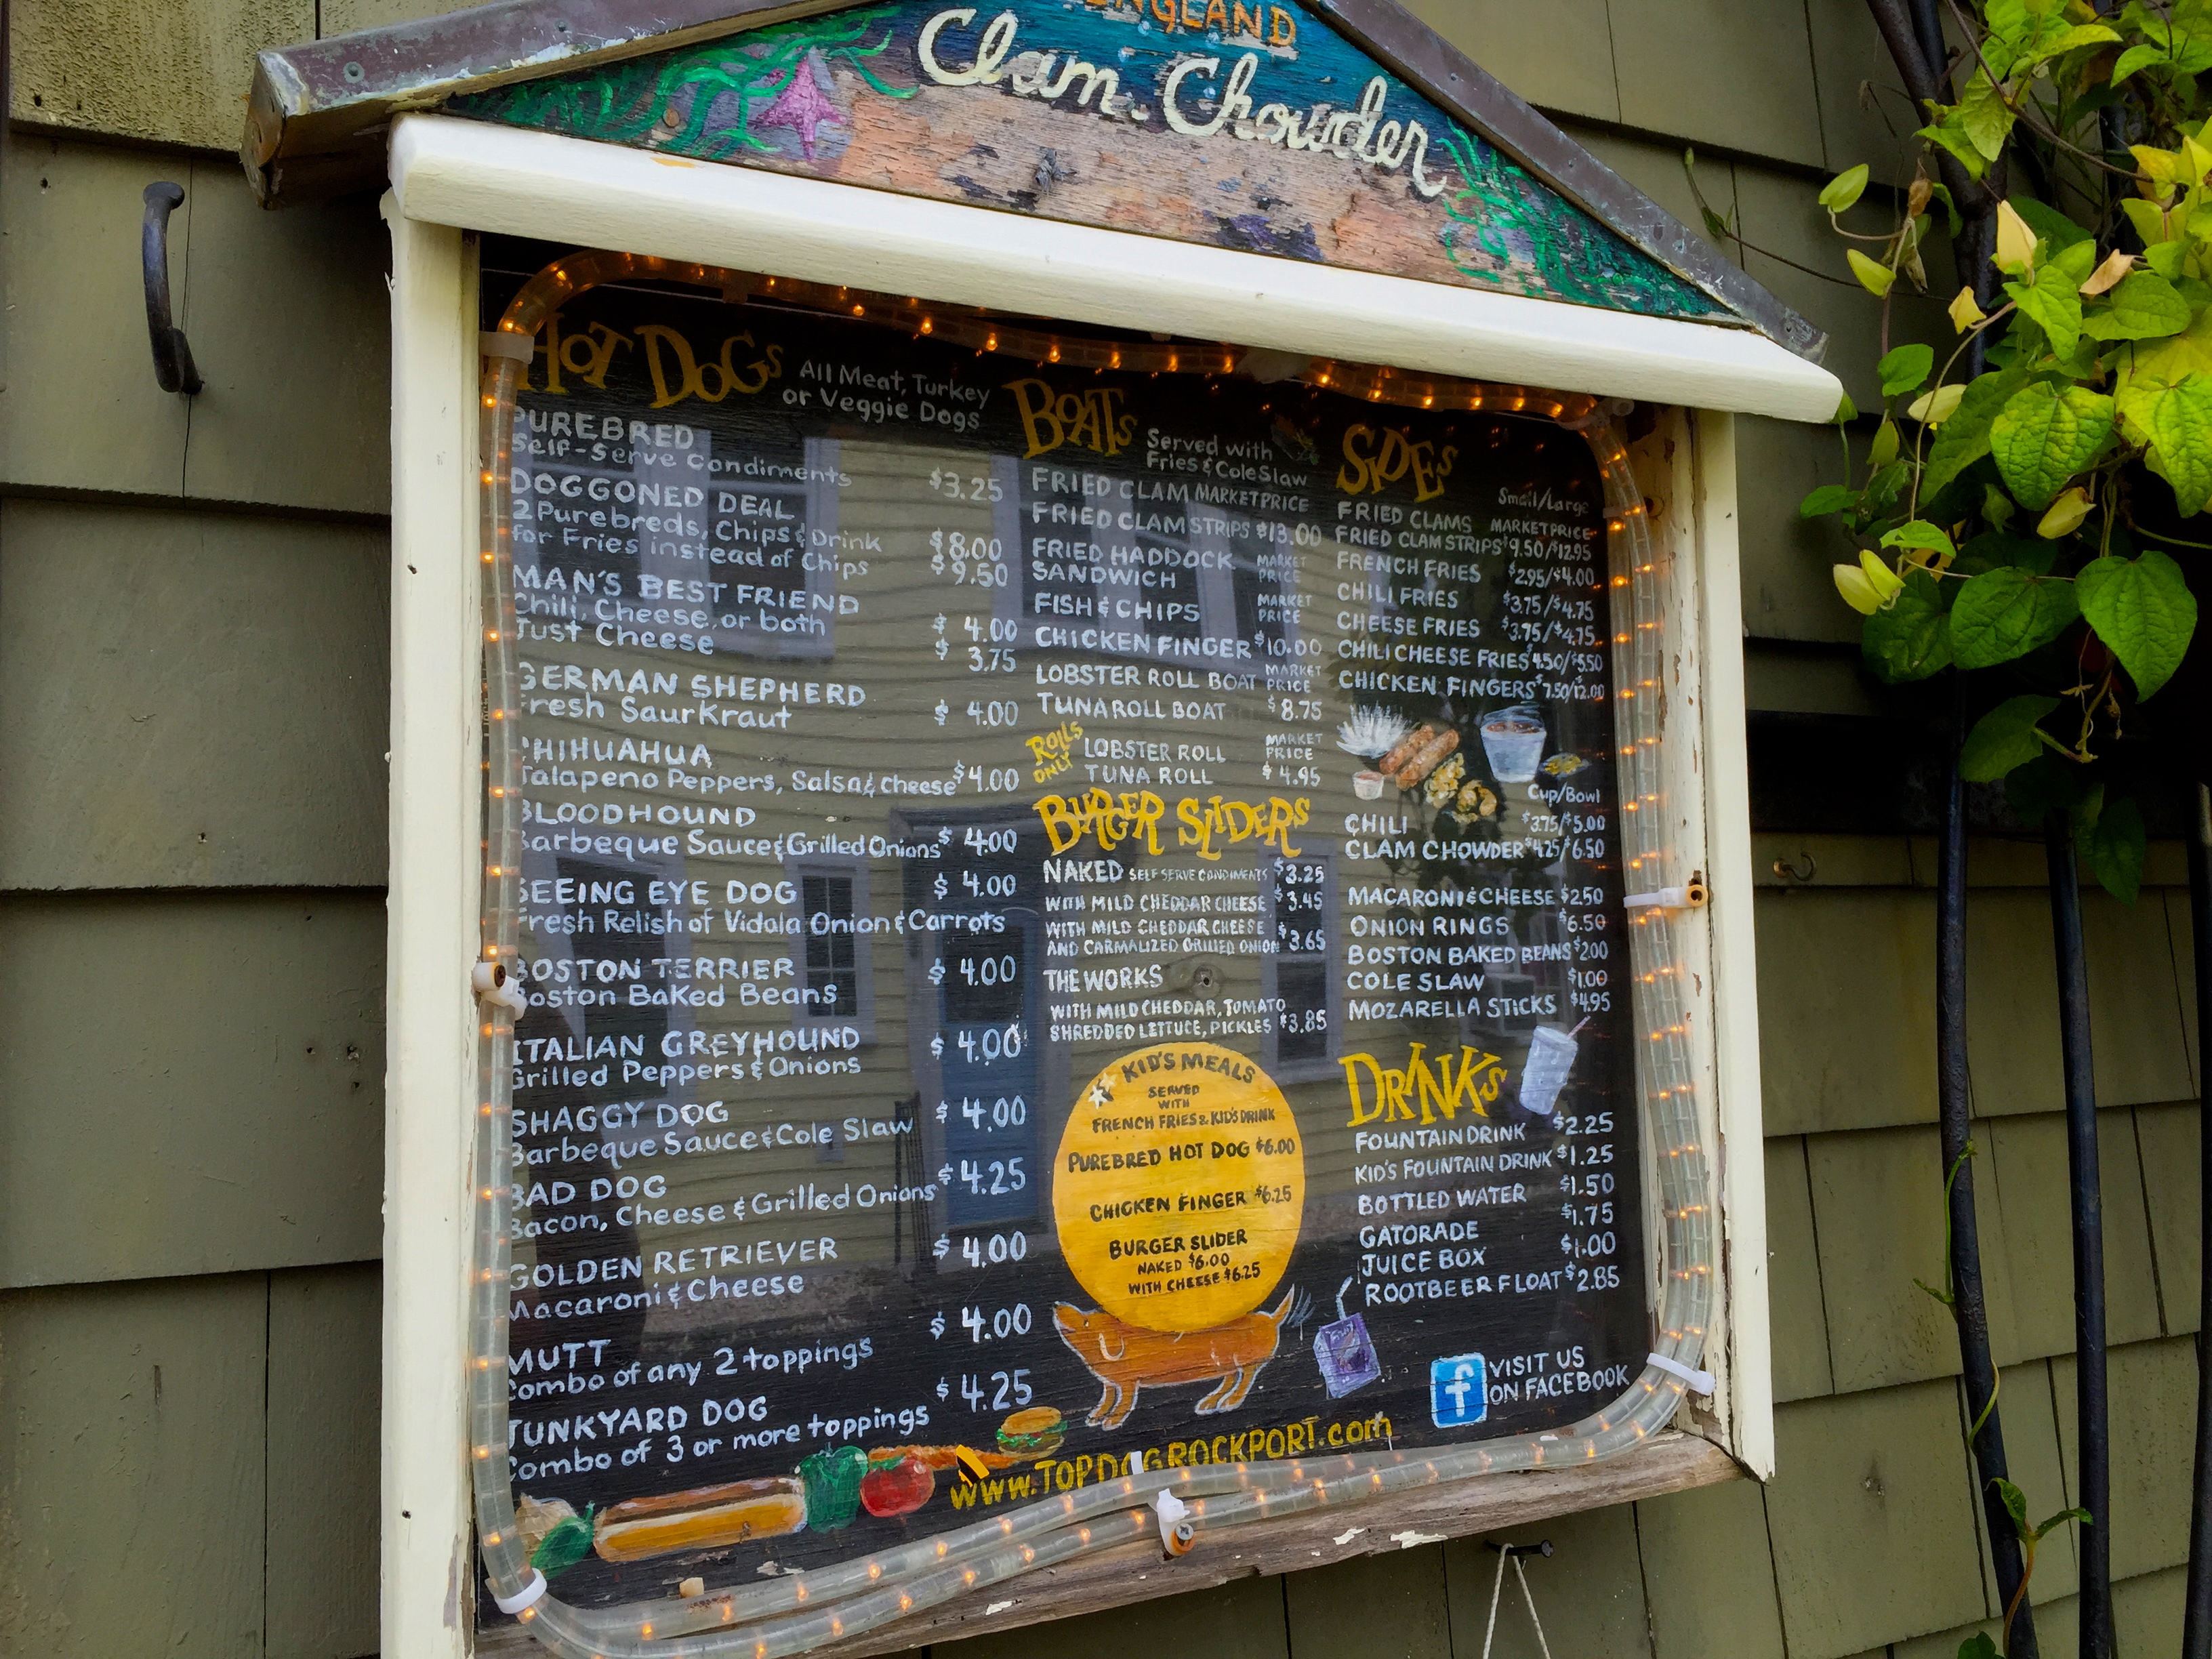 ENGLAND
Clam Chowder
HOT DOGS
All Meat, Turkey
or Veggie Dogs
PUREBRED
Self-Serve Condiments $3.25
DOGGONED DEAL
2 Purebreds, Chips & Drink $8.00
for Fries instead of Chips $9.50
MAN'S BEST FRIEND
Chili, Cheese, or both $4.00
Just Cheese $3.75
GERMAN SHEPHERD
Fresh SaurKraut $4.00
CHIHUAHUA
Jalapeno Peppers, Salsa & cheese $4.00
BLOODHOUND
Barbeque Sauce & Grilled Onions $4.00
SEEING EYE DOG $4.00
Fresh Relish of Vidala Onion & Carrots
BOSTON TERRIER $4.00
Boston Baked Beans
ITALIAN GREYHOUND $4.00
Grilled Peppers & Onions
SHAGGY DOG $4.00
Barbeque Sauce & Cole Slaw
BAD DOG $4.25
Bacon, Cheese & Grilled Onions
GOLDEN RETRIEVER $4.00
Macaroni & Cheese
MUTT $4.00
Combo of any 2 toppings
JUNKYARD DOG $4.25
Combo of 3 or more toppings
BOATS
Served with
Fries & Cole Slaw
FRIED CLAM MARKET PRICE
FRIED CLAM STRIPS $13.00
FRIED HADDOCK MARKET
SANDWICH PRICE
FISH & CHIPS MARKET PRICE
CHICKEN FINGER $10.00
LOBSTER ROLL BOAT MARKET PRICE
TUNA ROLL BOAT $8.75
ROLLS ONLY
LOBSTER ROLL MARKET PRICE
TUNA ROLL $4.95
BURGER SLIDERS
NAKED SELF SERVE CONDIMENTS $3.25
WITH MILD CHEDDAR CHEESE $3.45
WITH MILD CHEDDAR CHEESE
AND CARMALIZED GRILLED ONION $3.65
THE WORKS
WITH MILD CHEDDAR, TOMATO
SHREDDED LETTUCE, PICKLES $3.85
KID'S MEALS
SERVED
WITH
FRENCH FRIES & KID'S DRINK
PUREBRED HOT DOG $6.00
CHICKEN FINGER $6.25
BURGER SLIDER
NAKED $6.00
WITH CHEESE $6.25
SIDES
Small/Large
FRIED CLAMS MARKET PRICE
FRIED CLAM STRIPS $9.50/$12.95
FRENCH FRIES $2.95/$4.00
CHILI FRIES $3.75/$4.75
CHEESE FRIES $3.75/$4.75
CHILI CHEESE FRIES $4.50/$5.50
CHICKEN FINGERS $7.50/12.00
Cup/Bowl
CHILI $3.75/$5.00
CLAM CHOWDER $4.25/$6.50
MACARONI & CHEESE $2.50
ONION RINGS $6.50
BOSTON BAKED BEANS $2.00
COLE SLAW $1.00
MOZARELLA STICKS $4.95
DRINKS
FOUNTAIN DRINK $2.25
KID'S FOUNTAIN DRINK $1.25
BOTTLED WATER $1.50
GATORADE $1.75
JUICE BOX $1.00
ROOTBEER FLOAT $2.85
f VISIT US
ON FACEBOOK
www.TOPDOGROCKPORT.com